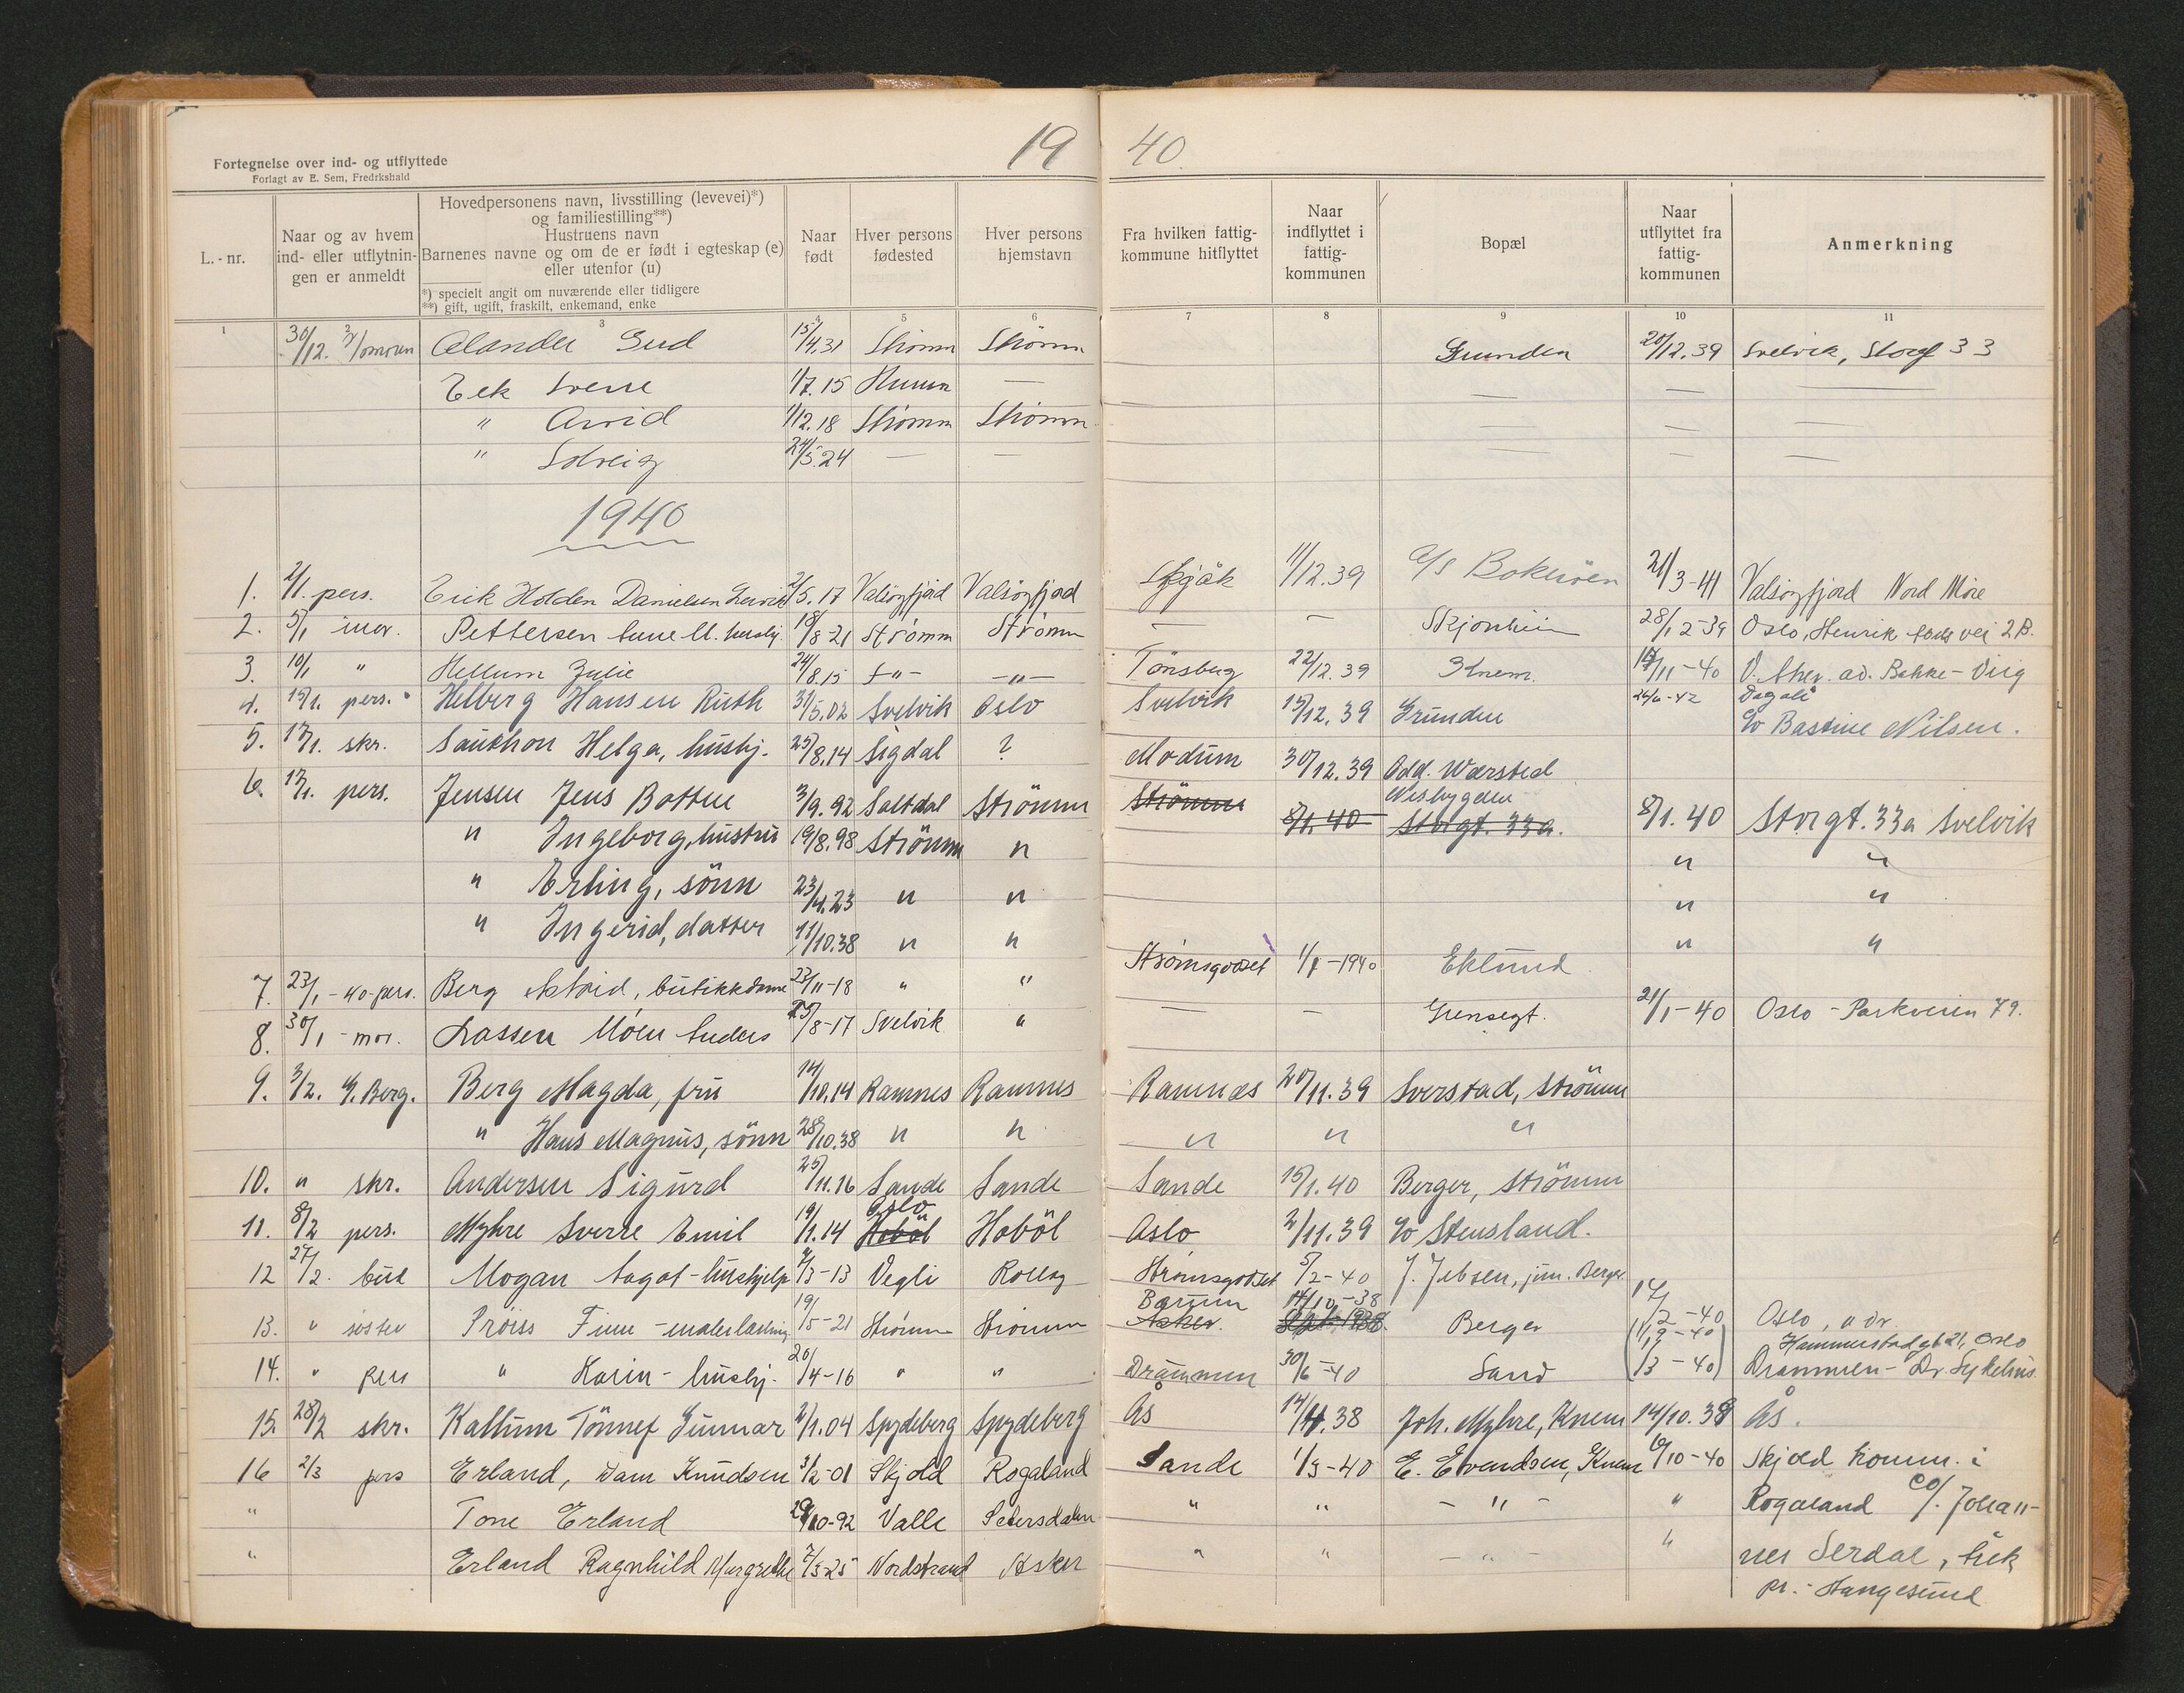 19 40
Fortegnelse over ind- og utflyttede
Forlagt av E. Sem, Fredrkshald
L.-nr.
Naar og av hvem
ind- eller utflytnin-
gen er anmeldt
Hovedpersonens navn, livsstilling (levevei)*)
og familiestilling**)
Hustruens navn
Barnenes navne og om de er født i egteskap (e)
eller utenfor (u)
*) specielt angit om nuværende eller tidligere
**) gift, ugift, fraskilt, enkemand, enke
Naar
født
Hver persons
fødested
Hver persons
hjemstavn
Fra hvilken fattig-
kommune hitflyttet
Naar
indflyttet i
fattig-
kommunen
Bopæl
Naar
utflyttet fra
fattig-
kommunen
Anmerkning
1 3 4 5 6 7 8 9 10 11
30/12. Gud 15/4.31 Strømm Strømm Grunden 20/12.39 Svelvik, Storg 33
Eek Sverre 1/7.15 Hurum — — — —
" Arvid 1/12.18 Strømm Strømm — — —
" Solveig 24/5.24 — — — — —
1940
1. 2/1. pers. Erik Holden Danielsen 2/5.17 Valsøyfjord Valsøyfjord Skjåk 11/12.39 a/s Bokerøen 21/3-41 Valsøyfjord Nord Møre
2. 5/1 mor. Pettersen hushj. 18/8-21 Strømm Strømm — — Skjønheim 28/12-39 Oslo, Henrik vei 2B.
3. 10/1 " Hellum Julie 24/8.15 -"- -"- Tønsberg 22/12.39 Knem. 14/11-40 V. Aker. ad. Bakke-
4. 15/1. pers. Helberg Hansen Ruth 31/5.02 Svelvik Oslo Svelvik 15/12.39 Grunden 26/6-42 Dagali
c/o Bastine Nilsen.
5. 17/1. skr. Helga, hushj. 25/8.14 Sigdal ? Modum 30/12.39 Odd. Wærsted
Nesbygden
6. 17/1. pers. Jensen Jens Botten 3/9.92 Saltdal Strömm Strömm 8/1.40 Storgt. 33a. 8/1.40 Storgt. 33a Svelvik
" Ingeborg, hustru 19/8.98 Strömm " " "
" Erling, sönn 23/4.23 " " " "
" Ingerid, datter 11/10.38 " " " "
7. 23/1-40-pers. Berg Astrid, butikkdame 23/11-18 " " Strømsgodset 1/1-1940 Eklund
8. 30/1-mor. Lassen Moen Anders 25/8-17 Svelvik " — — Grensegt. 21/1-40 Oslo - Parkveien 79.
9. 3/2. G. Berg. Berg Magda, fru 14/10.14 Ramnes Ramnes Ramnæs 20/11.39 Sverstad, Strömm
" Hans Magnus, sönn 28/10.38 " " " " "
10. " skr. Andersen Sigurd 25/11.16 Sande Sande Sande 15/1.40 Berger, Strömm
11. 8/2 pers. Myhre Sverre Emil 19/1.14 Hoböl Oslo Hoböl Oslo 2/11.39 c/o Stensland.
12 27/2. bud Mogan Aagot-hushjelp 4/3-13 Vegli Rollag Strømsgodset 5/2-40 J. Jebsen, jun. Berger
13. " søster Prøiss Finn - 19/5-21 Strømm Strømm Bærum Asker. 14/10-38 Sept. 1938. Berger 14/2-40 Oslo,
Hammerstadgt 21, Oslo
14. " pers " Karin - hushj. 20/4-16 " " Drammen 30/6-40 Sand 1/3-40 Drammen - Dr Sykehus
15. 28/2 skr. Kallum Tönnef Gunnar 2/1.04 Spydeberg Spydeberg Ås 14/4.38 Joh. Myhre, Knem 14/10.38 Ås.
16 2/3 pers Erland, Dam Knudsen 3/2-01 Skjold Rogaland Sande 1/3-40 E. Evendsen, Knem 6/10-40 Skjold komm. i
" Tone Erland 29/10-92 Valle Setersdalen " " - " - " Rogaland c/o. Johan-
" Erland Ragnhild Margrethe 7/3 25 Nordstrand Asker " " - " - " nes Serdal,
pr. Haugesund